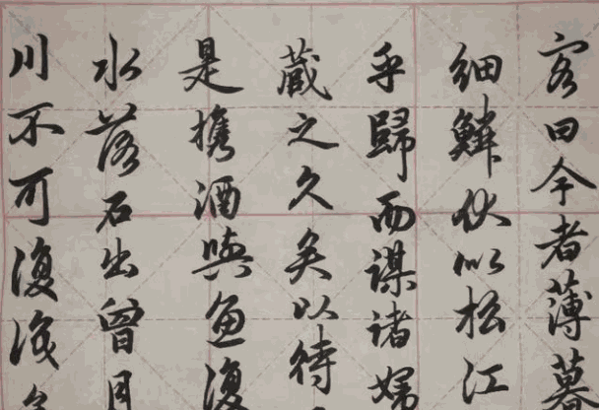 客曰今者薄暮
細鱗状似松江
乎歸而謀諸婦
藏之久矣以待
是携酒與魚復
水落石出曾日
川不可復